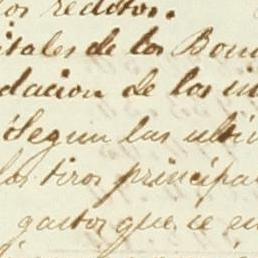 los reditos.
itales de los Bon
dacion de los in
Segun las ulti
los tiros principa
gastos que se